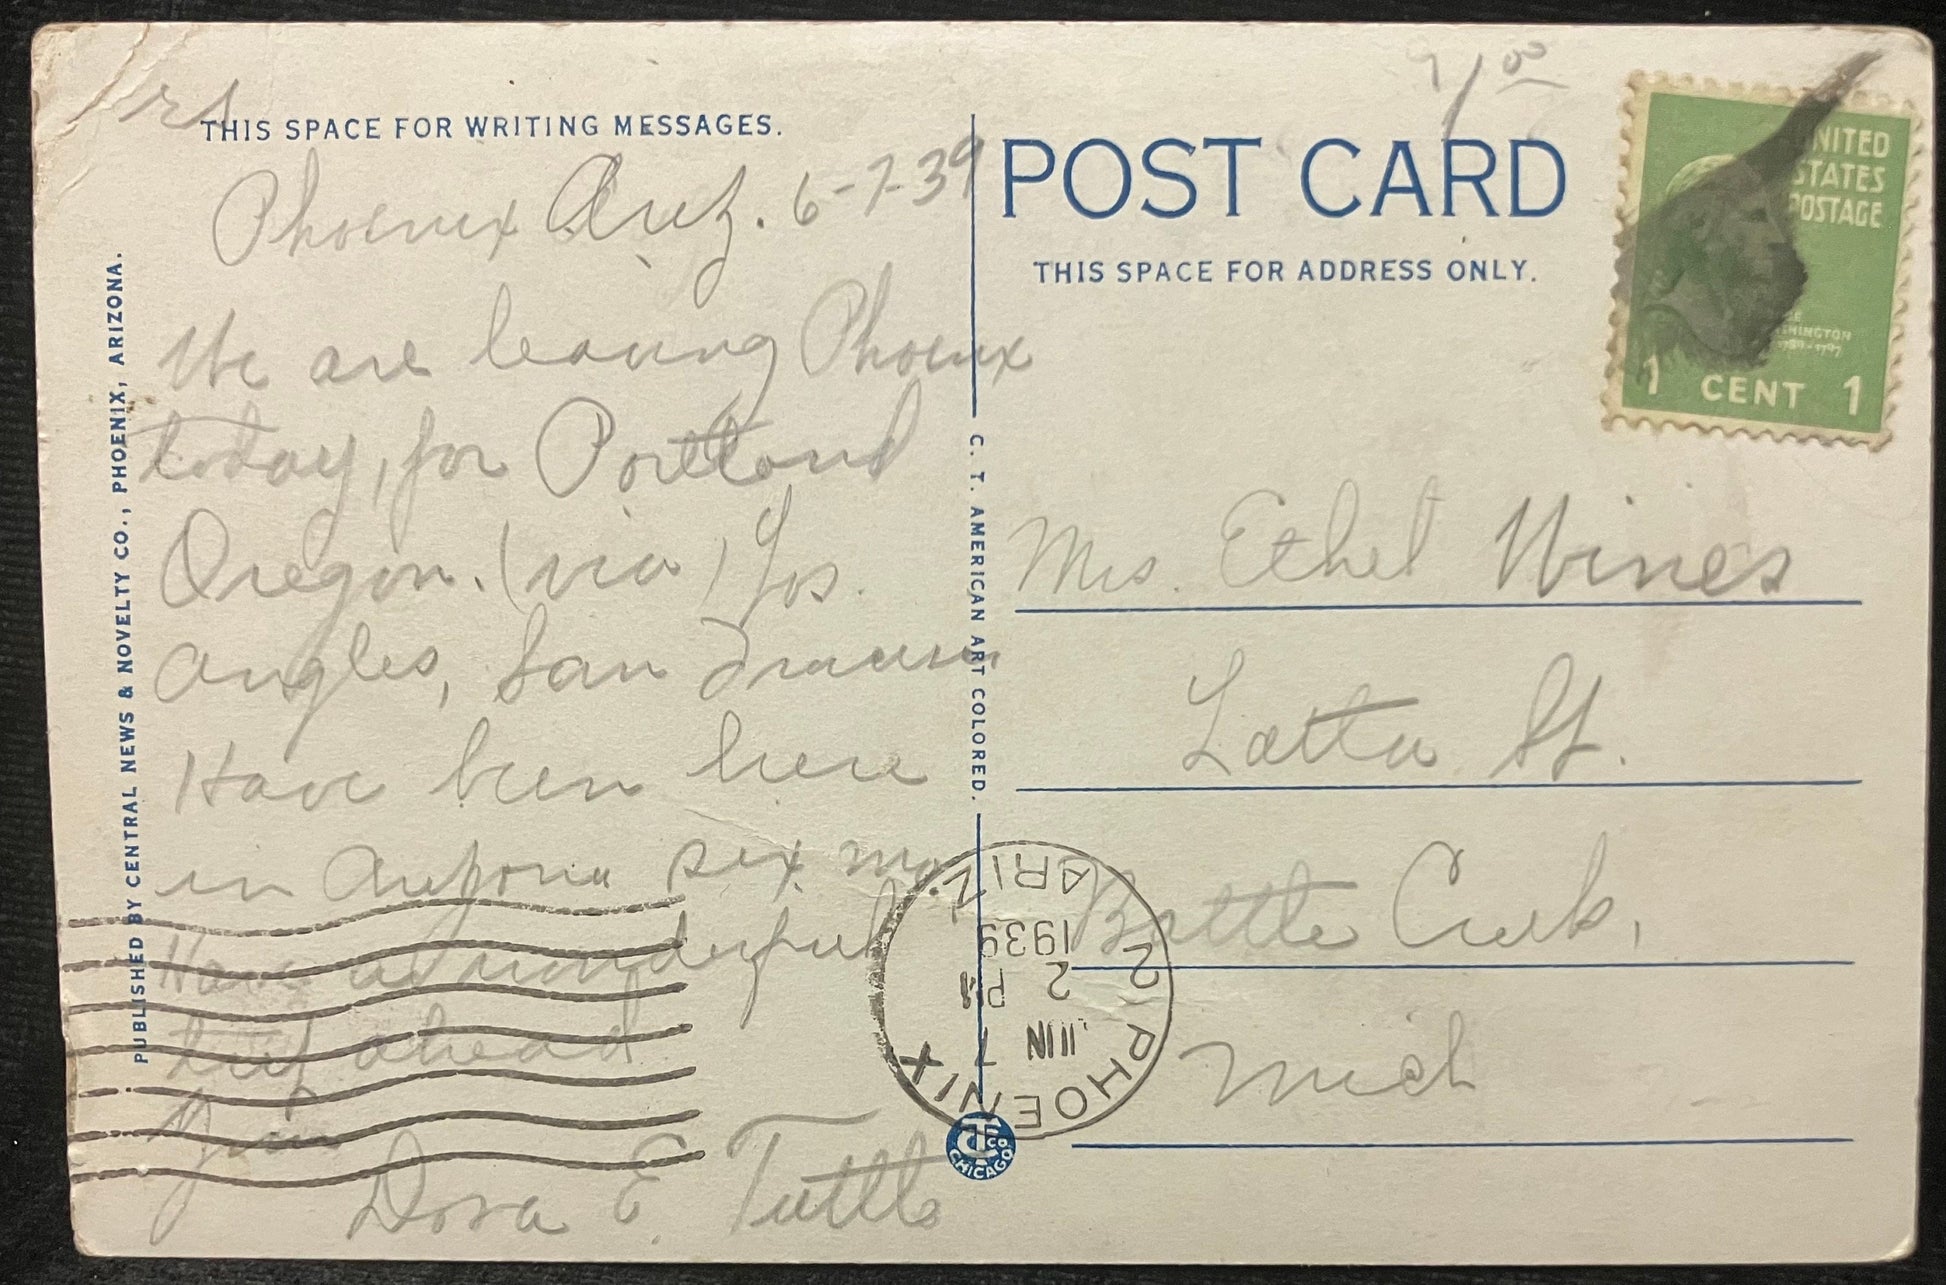 THIS SPACE FOR WRITING MESSAGES.
Phoenix Ariz. 6-7-39
We are leaving Phoenix
today, for Portland
Oregon. (via) Los.
Angles, San Francisco
Have been here
in Arizona six mo.
Have a wonderful
trip ahead
Dora E. Tuttle
PUBLISHED BY CENTRAL NEWS & NOVELTY CO., PHOENIX, ARIZONA.
C. T. AMERICAN ART COLORED.
POST CARD
THIS SPACE FOR ADDRESS ONLY.
UNITED
STATES
POSTAGE
WASHINGTON
1789-1797
1 CENT 1
Mrs. Ethel Wines
Latta St.
Battle Creek,
Mich
PHOENIX 2
ARIZ.
JUN 7
2 PM
1939
CT CO
CHICAGO